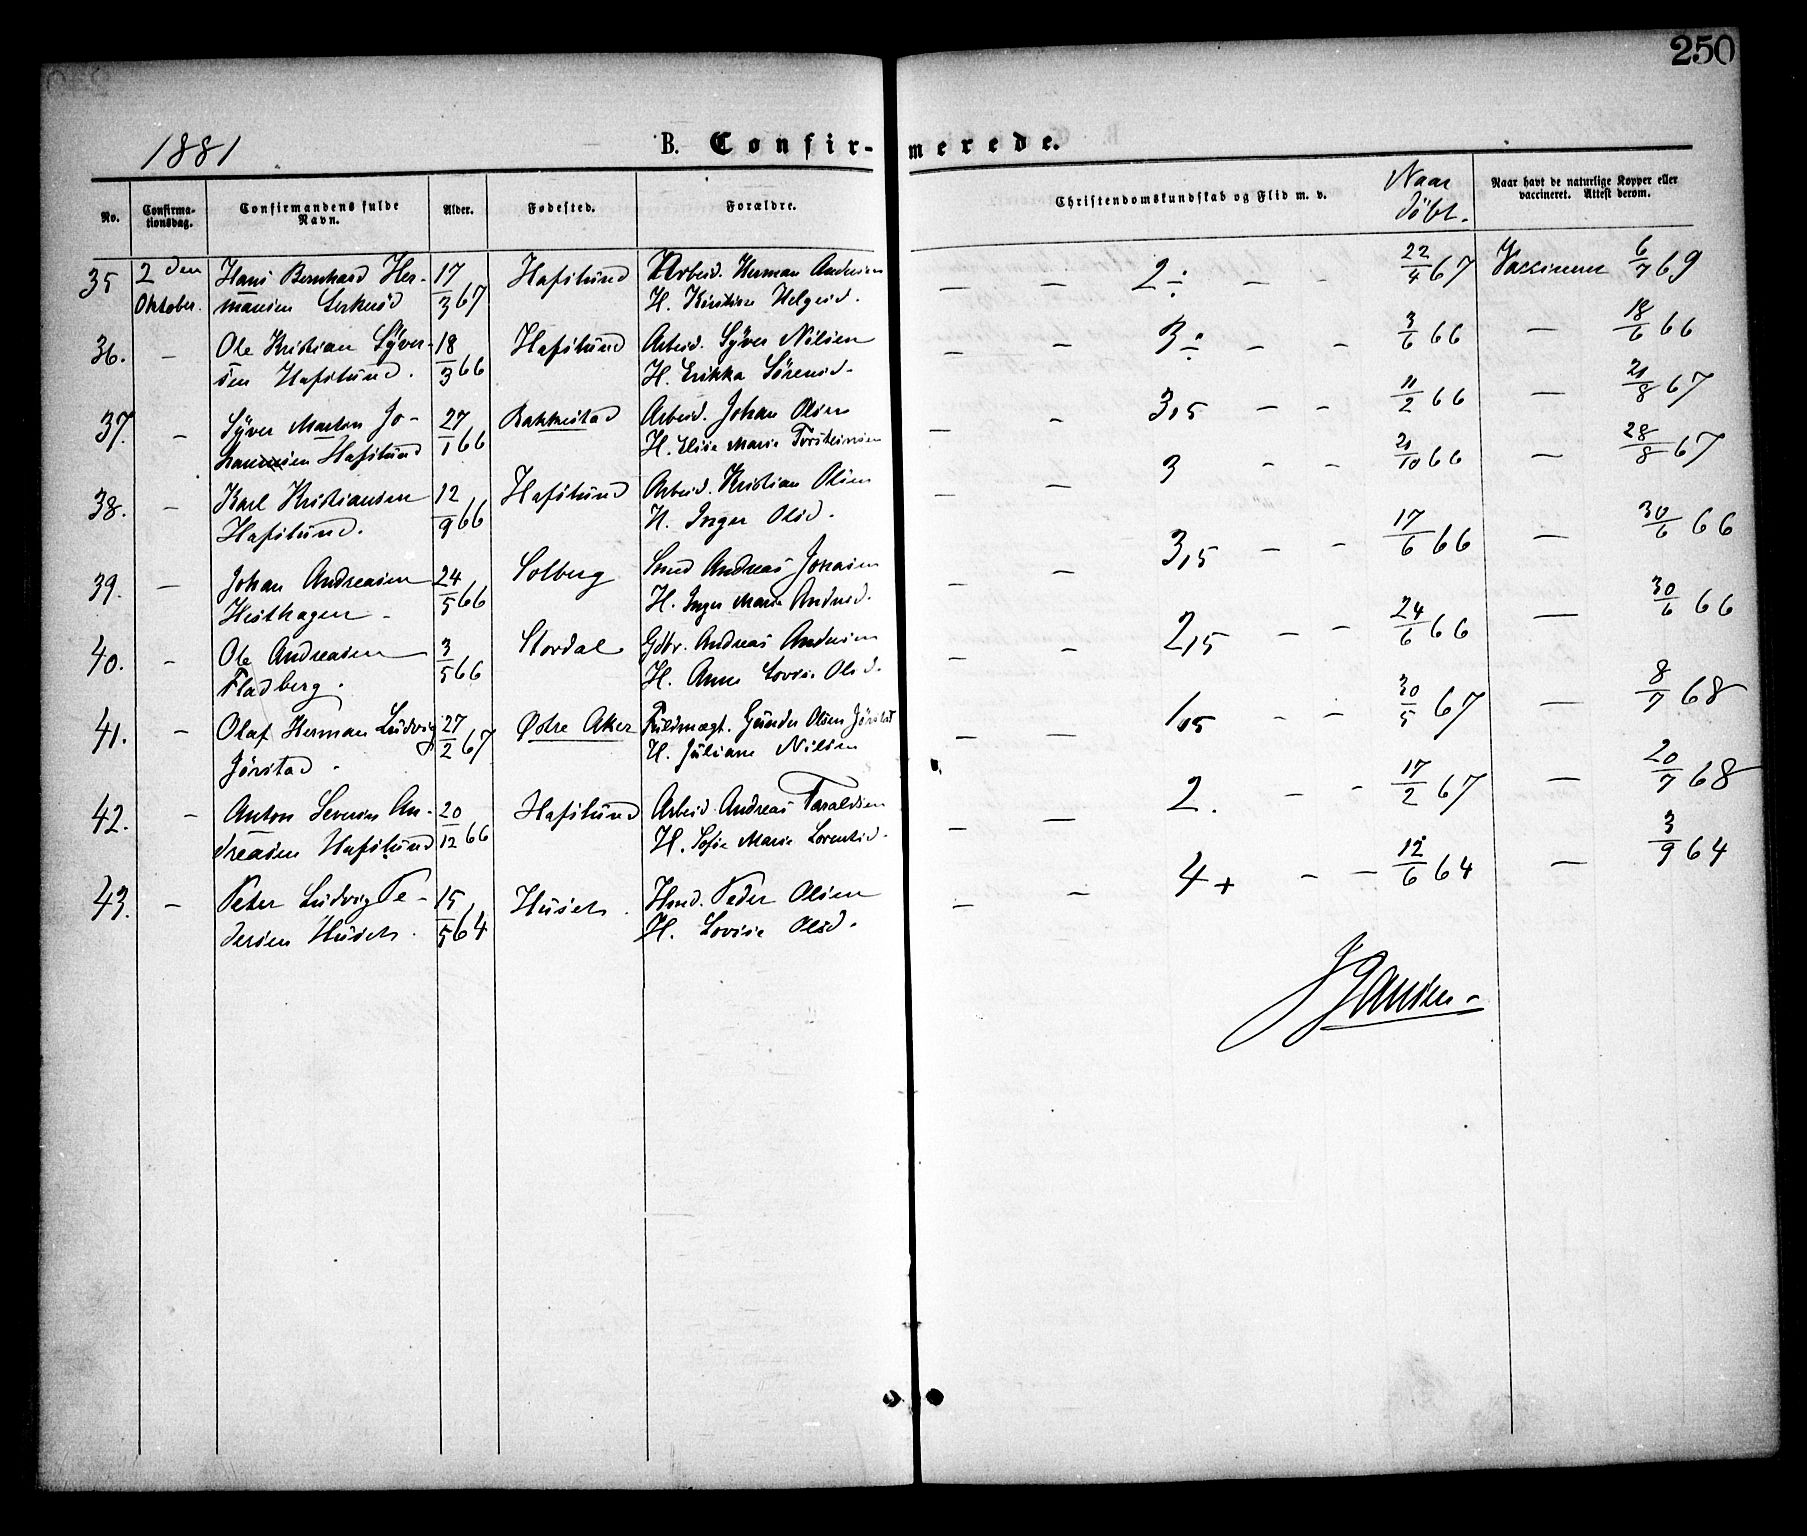 250
1881
B. Confir-merede.
No.
Confirma-
tionsdag.
Confirmandens fulde
Navn.
Alder.
Fødested.
Forældre.
Christendomskundskab og Flid m. v.
Naar
döbt.
Naar havt de naturlige Kopper eller
vaccineret. Attest derom.
35 2 den Hans Bernhard Her- 17 Hafslund Arbeid. Herman Andersen — — 2 ÷ — - 22/4 67 Vaccineret 6/7 69
Oktober. mansen 3 67 H. Kirstine Helgesd.
36. - Ole Kristian Syver- 18 Hafslund Arbeid. Syver Nilsen — - 3 ÷ - - 3/6 66 — 18/6 66
sen Hafslund. 3 66 H. Erikka Sörensd.
37. - Syver Marton Jo- 27 Bakkestad Arbeid. Johan Olsen — - 3,5 - - 11/2 66 — 21/8 67
hannesen Hafslund 1 66 H. Elise Marie Torsteinsen
38. - Karl Kristiansen 12 Hafslund Arbeid. Kristian Olsen — - 3 - - 21/10 66 — 28/8 67
Hafslund. 9 66 H. Inger Olsd.
39. — Johan Andreasen 24 Solberg Smed Andreas Jonasen - - 3,5 - - 17/6 66 — 30/6 66
Hesthagen - 5 66 H. Inger Marie Andersd.
40. - Ole Andreasen 3 Stordal Gdbr. Andreas Andersen - - 2,5 - - 24/6 66 — 30/6 66
Fladberg. 5 66 H. Anne Lovise Olsd.
41. - Olaf Herman Ludvig 27 Østre Aker Fuldmægt. Gunder Olsen Jörstad - — 1,5 - - 30/5 67 — 8/7 68
Jörstad - 2 67 H. Juliane Nilsen
42. - Anton Severin An- 20 Hafslund Arbeid. Andreas Taraldsen - — 2. - - 17/2 67 — 20/7 68
dreasen Hafslund 12 66 H. Sofie Marie Lorentsd.
43. - Peter Ludvig Pe- 15 Husets. Hmd. Peder Olsen - - 4 + - - 12/6 64 — 3/9 64
dersen Husets. 5 64 H. Lovise Olsd.